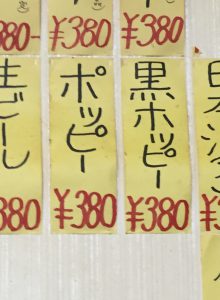 ¥380
¥380
380-
黒ホッピー
¥380
ポッピー
¥380
生ビール
380